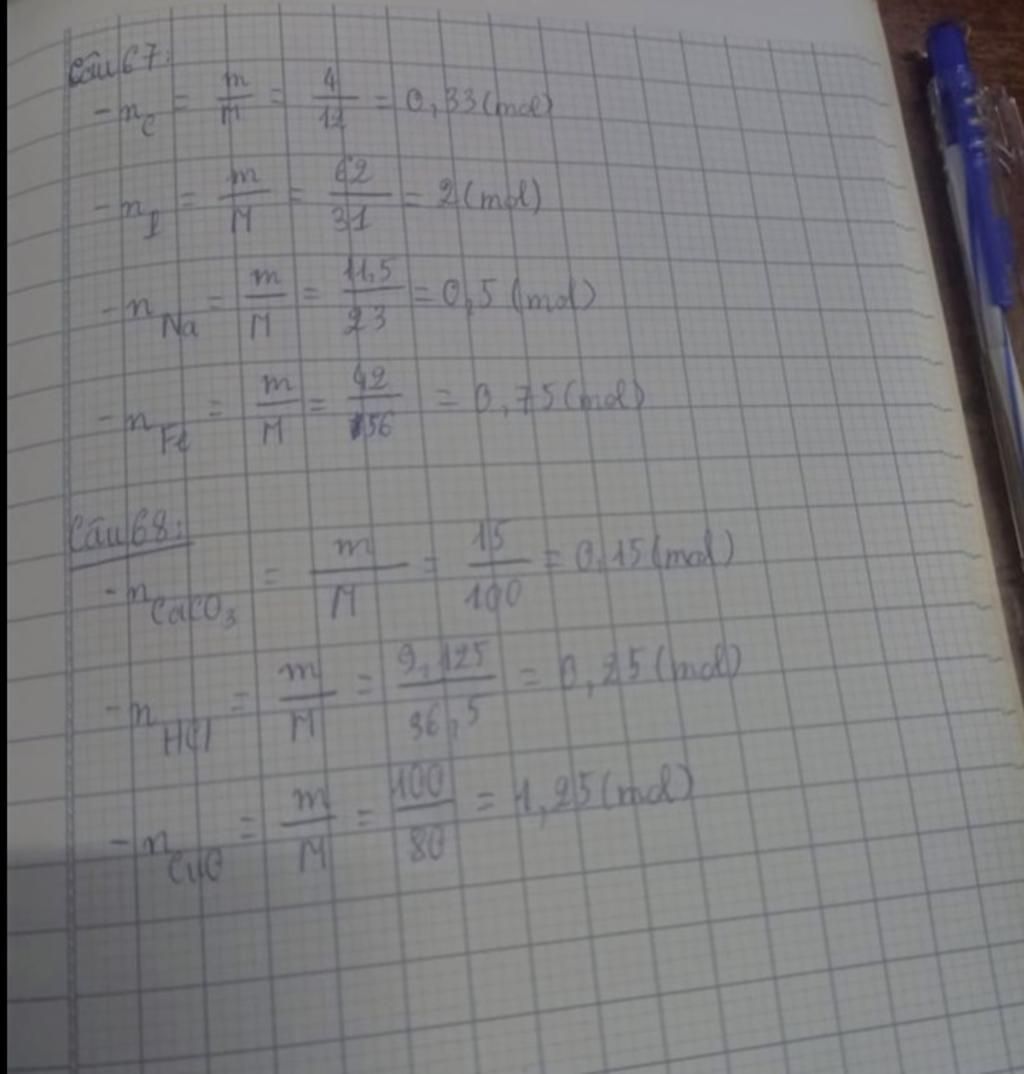 Câu 67:
- n_C = m/M = 4/12 = 0,33 (mol)
- n_P = m/M = 62/31 = 2 (mol)
- n_Na = m/M = 11,5/23 = 0,5 (mol)
- n_Fe = m/M = 42/56 = 0,75 (mol)
Câu 68:
- n_CaCO3 = m/M = 15/100 = 0,15 (mol)
- n_HCl = m/M = 9,125/36,5 = 0,25 (mol)
- n_CuO = m/M = 100/80 = 1,25 (mol)